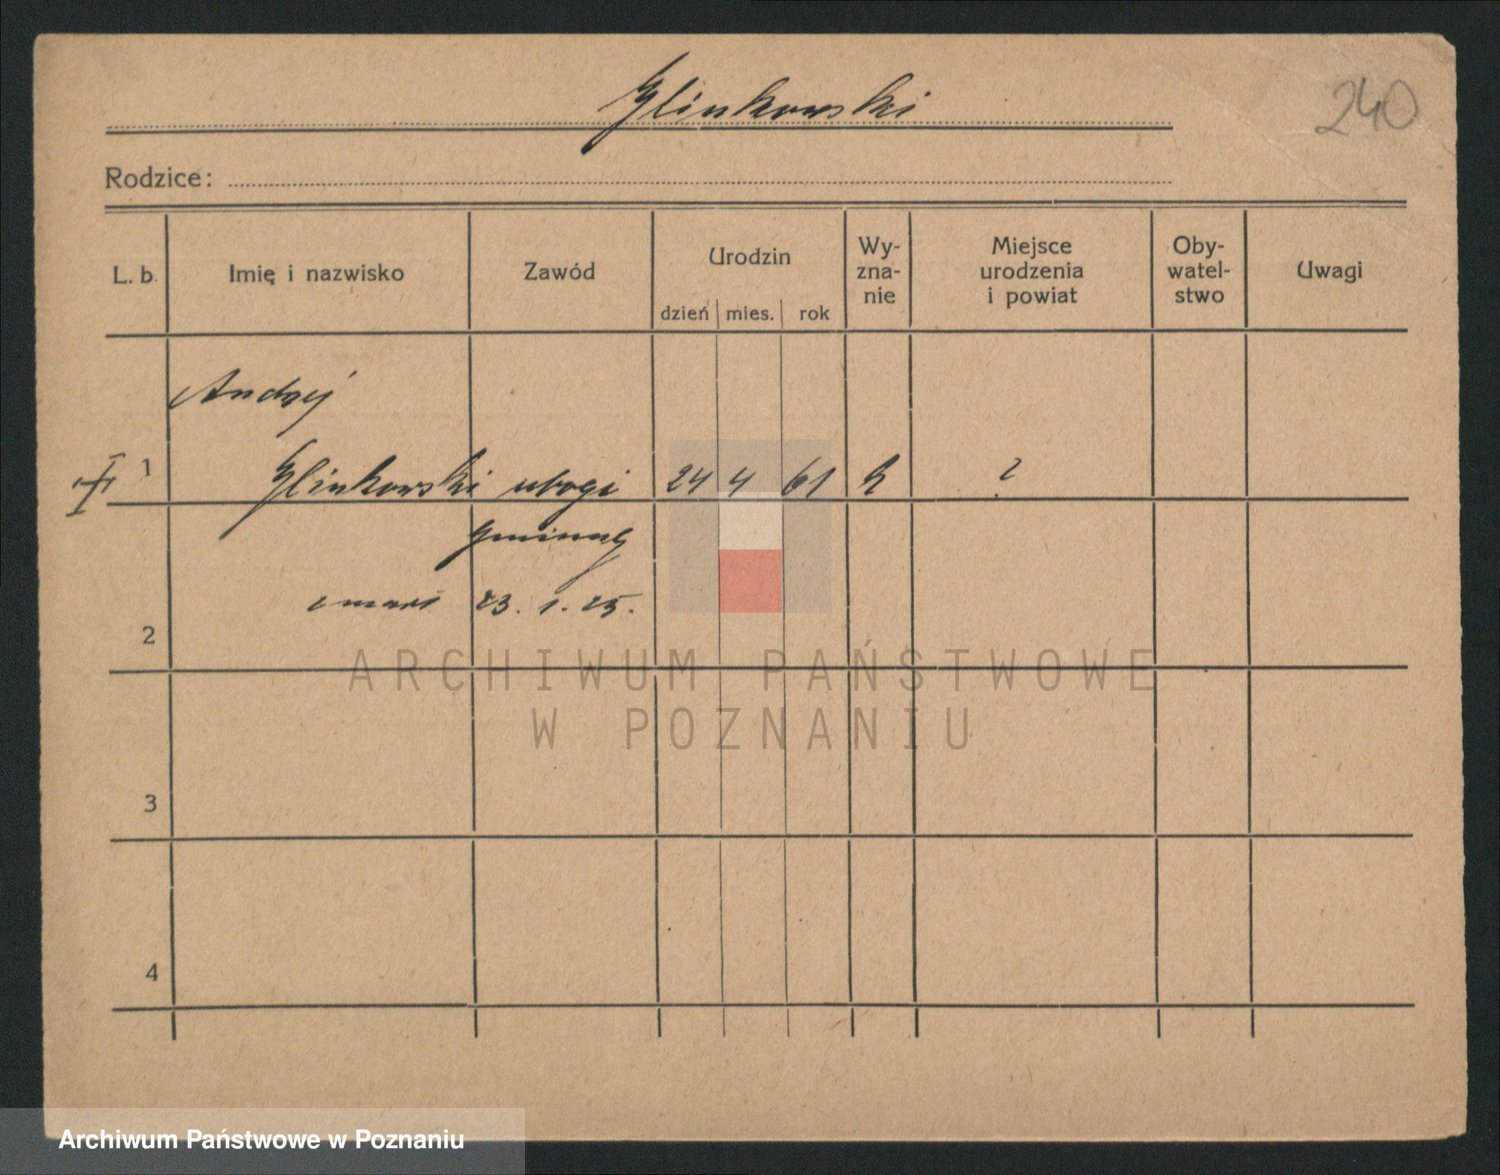 Glinkowski
240
Rodzice:
L. b.
Imię i nazwisko
Zawód
Urodzin
dzień mies. rok
Wy-
zna-
nie
Miejsce
urodzenia
i powiat
Oby-
watel-
stwo
Uwagi
Andrzej
1 Glinkowski ubogi 24 4 61 k ?
gminny
zmarł 23. 1. 25.
2
ARCHIWUM PAŃSTWOWE
W POZNANIU
3
4
Archiwum Państwowe w Poznaniu